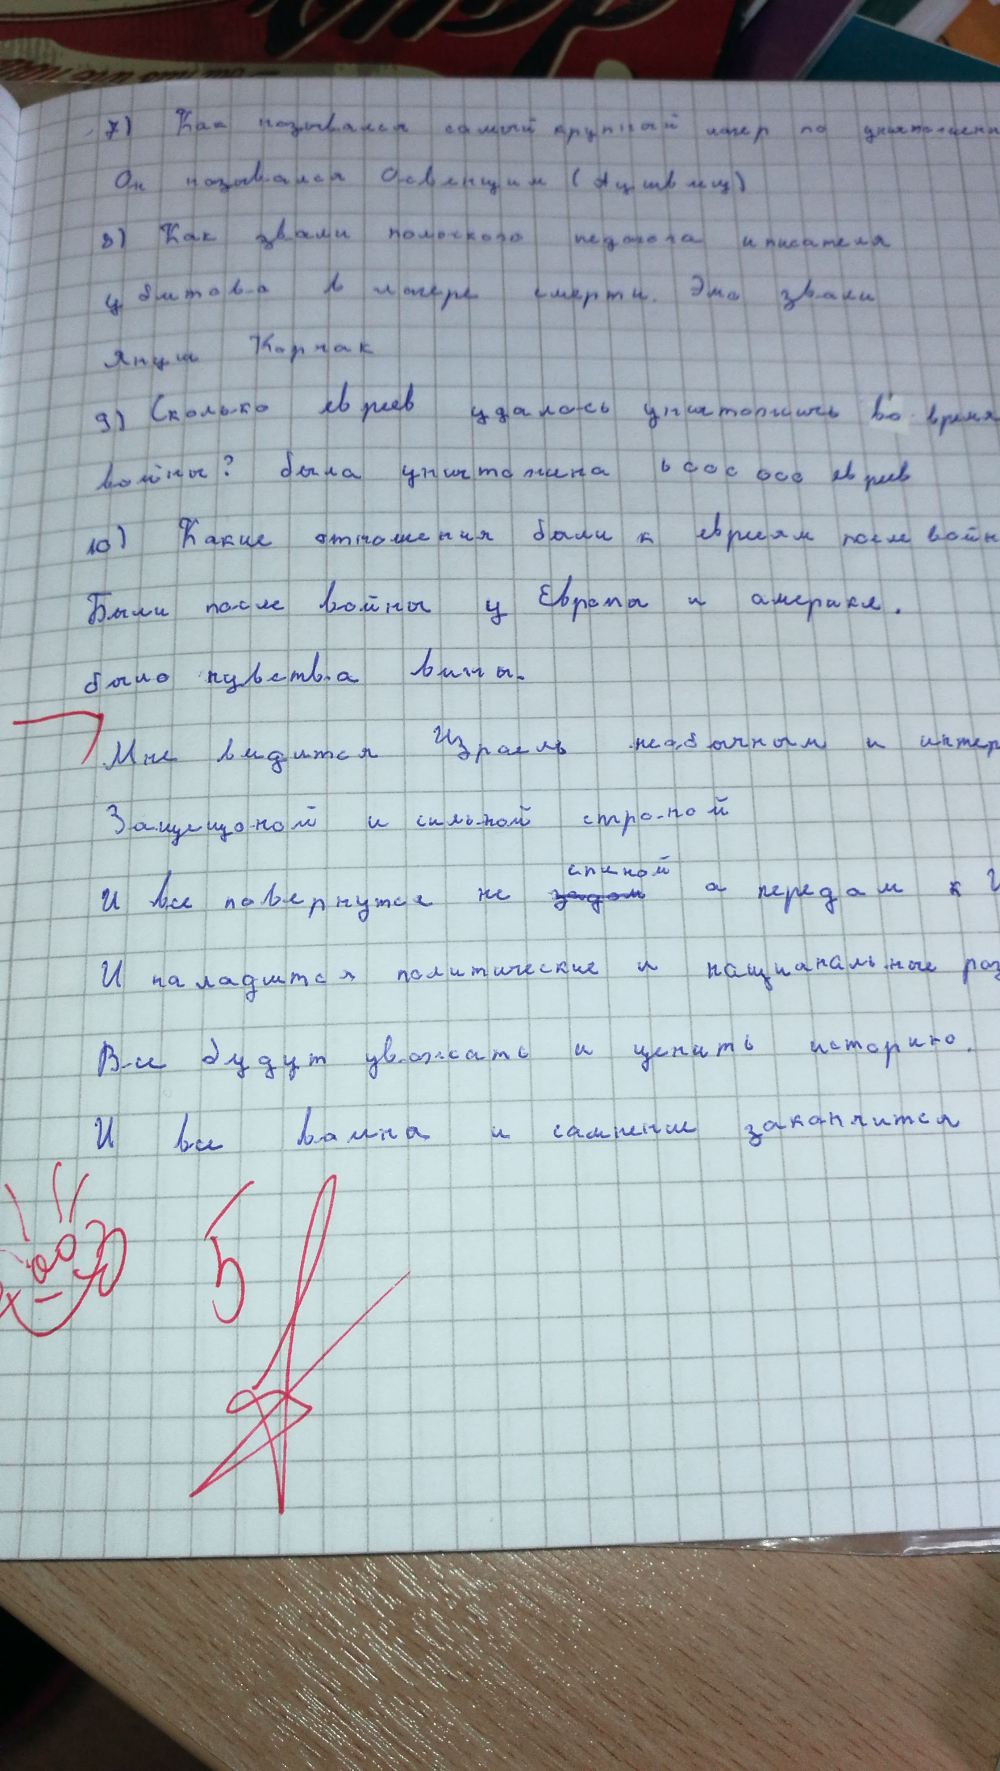 7) Как назывался самый крупный лагер по уничтожени
Он назывался Освенцим (Аушвиц)
8) Как звали польского педагога и писателя
убитово в лагере смерти. Эмо звали
Януш Корчак
9) Сколько евриев удалось уничтожить во время
войны? была уничтожина 6 000 000 евриев
10) Какие отношения были к евриям после войн
Были после войны у Европы и америке.
было чувства вины.
Мне видится Израель необычным и интер
Защищоной и сильной страной
И все повернутся не спиной а передам к И
И наладится политические и нацианальные раз
Все будут уважать и ценить историю.
И все вайна и самнение заканчится
5